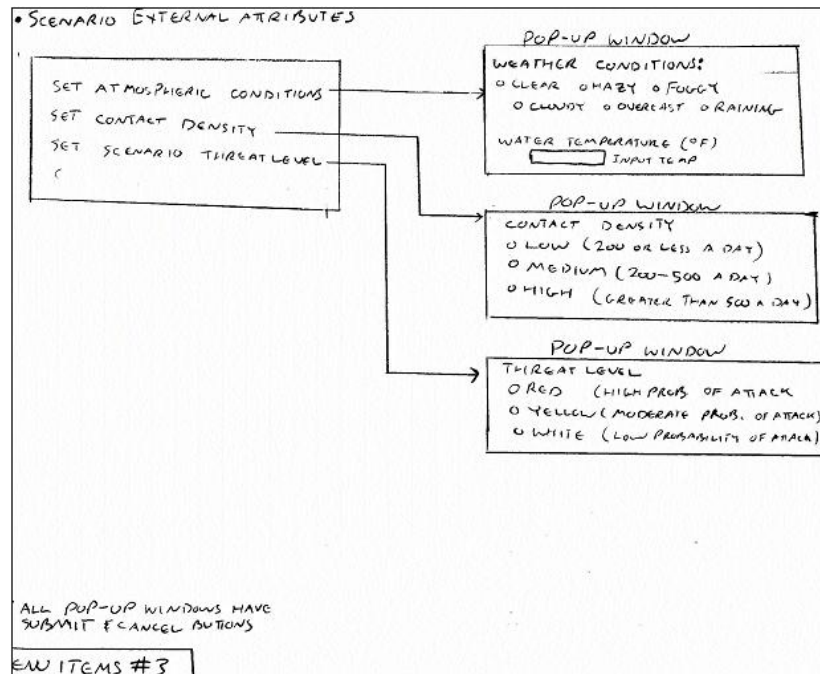 • SCENARIO EXTERNAL ATTRIBUTES
SET ATMOSPHERIC CONDITIONS
SET CONTACT DENSITY
SET SCENARIO THREAT LEVEL
POP-UP WINDOW
WEATHER CONDITIONS:
O CLEAR O HAZY O FOGGY
O CLOUDY O OVERCAST O RAINING
WATER TEMPERATURE (°F)
INPUT TEMP
POP-UP WINDOW
CONTACT DENSITY
O LOW (200 OR LESS A DAY)
O MEDIUM (200-500 A DAY)
O HIGH (GREATER THAN 500 A DAY)
POP-UP WINDOW
THREAT LEVEL
O RED (HIGH PROB OF ATTACK
O YELLOW (MODERATE PROB. OF ATTACK)
O WHITE (LOW PROBABILITY OF ATTACK)
ALL POP-UP WINDOWS HAVE
SUBMIT & CANCEL BUTTONS
EW ITEMS #3